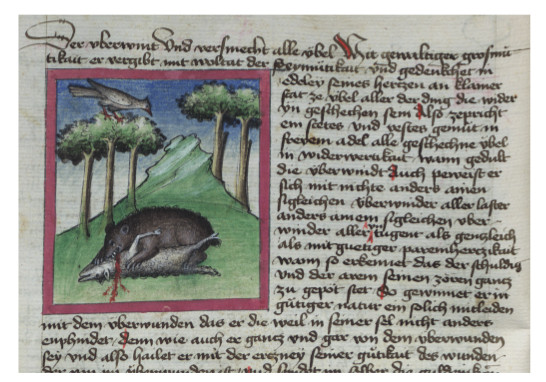 Der vberwint Vnd versmecht alle vbel Mit gewaltiger grosmü
tikait er vergibt mit woltat der hermütikait vnd gedenkhet in
edeler seines hertzen an klainer
stat ze vbel aller der ding die wider
yn geschechen sein Also zepricht
ein stetes vnd vestes gemüt in
freyem adel alle geschechne vbel
in widerwertikait wann gedult
die vberwindt Auch peweist er
sich mit nichte anders ainen
sigleichen vberwinder aller laster
anders ainem sigleichen vber
winder aller tugent als gentzleich
als mit guetiger parmhertzikait
wann so erkennet das der schuldig
vnd der arem seinen zoren gantz
zu gepot stet So gewinnet er in
gütiger natur ein solich mitleiden
mit dem vberwunden das er die weil in seiner sel nicht anders
enphindet Denn wie auch er gantz vnd gar von dem vberwunden
sey vnd also hailet er mit der ertzney seiner gütikait des wunden